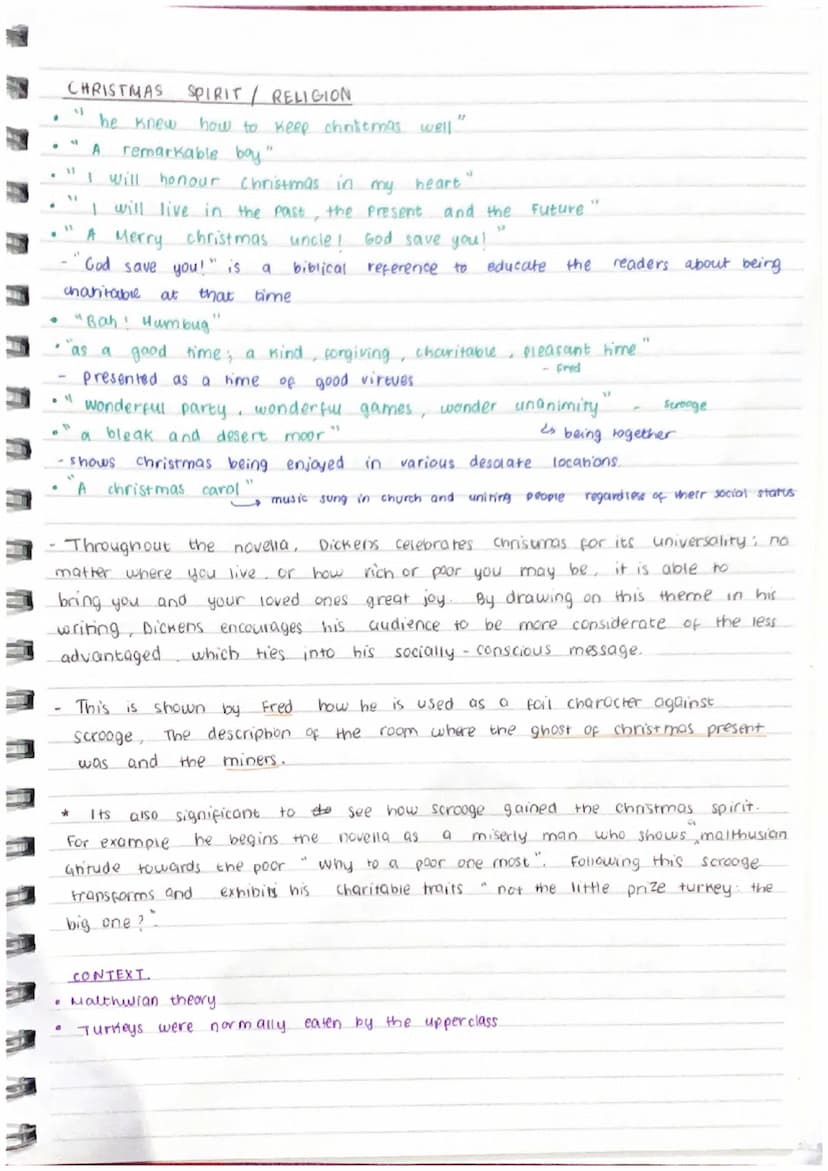 CHRISTMAS SPIRIT / RELIGION
• "he knew how to keep christmas well"
• "A remarkable boy"
• "I will honour christmas in my heart"
• "I will live in the past, the present and the Future"
• "A Merry christmas uncle! God save you!"
- "God save you!" is a biblical reference to educate the readers about being
charitable at that time
• "Bah! Humbug"
• "as a good time; a kind, forgiving, charitable, pleasant time"
- presented as a time of good virtues - Fred
• "wonderful party, wonderful games, wonder unanimity" - scrooge
• "a bleak and desert moor" ↳ being together
- shows christmas being enjoyed in various desolate locations.
• "A christmas carol" → music sung in church and uniting people regardless of their social status
- Throughout the novella, Dickens celebrates christmas for its universality; no
matter where you live, or how rich or poor you may be, it is able to
bring you and your loved ones great joy. By drawing on this theme in his
writing, Dickens encourages his audience to be more considerate of the less
advantaged, which ties into his socially-conscious message.
- This is shown by Fred how he is used as a foil character against
scrooge, The description of the room where the ghost of christmas present
was and the miners.
* Its also significant to see how scrooge gained the christmas spirit.
For example he begins the novella as a miserly man who shows "malthusian
attitude towards the poor "why to a poor one most". Following this scrooge
transforms and exhibits his charitable traits "not the little prize turkey: the
big one?".
CONTEXT.
• Malthusian theory
• Turkeys were normally eaten by the upperclass